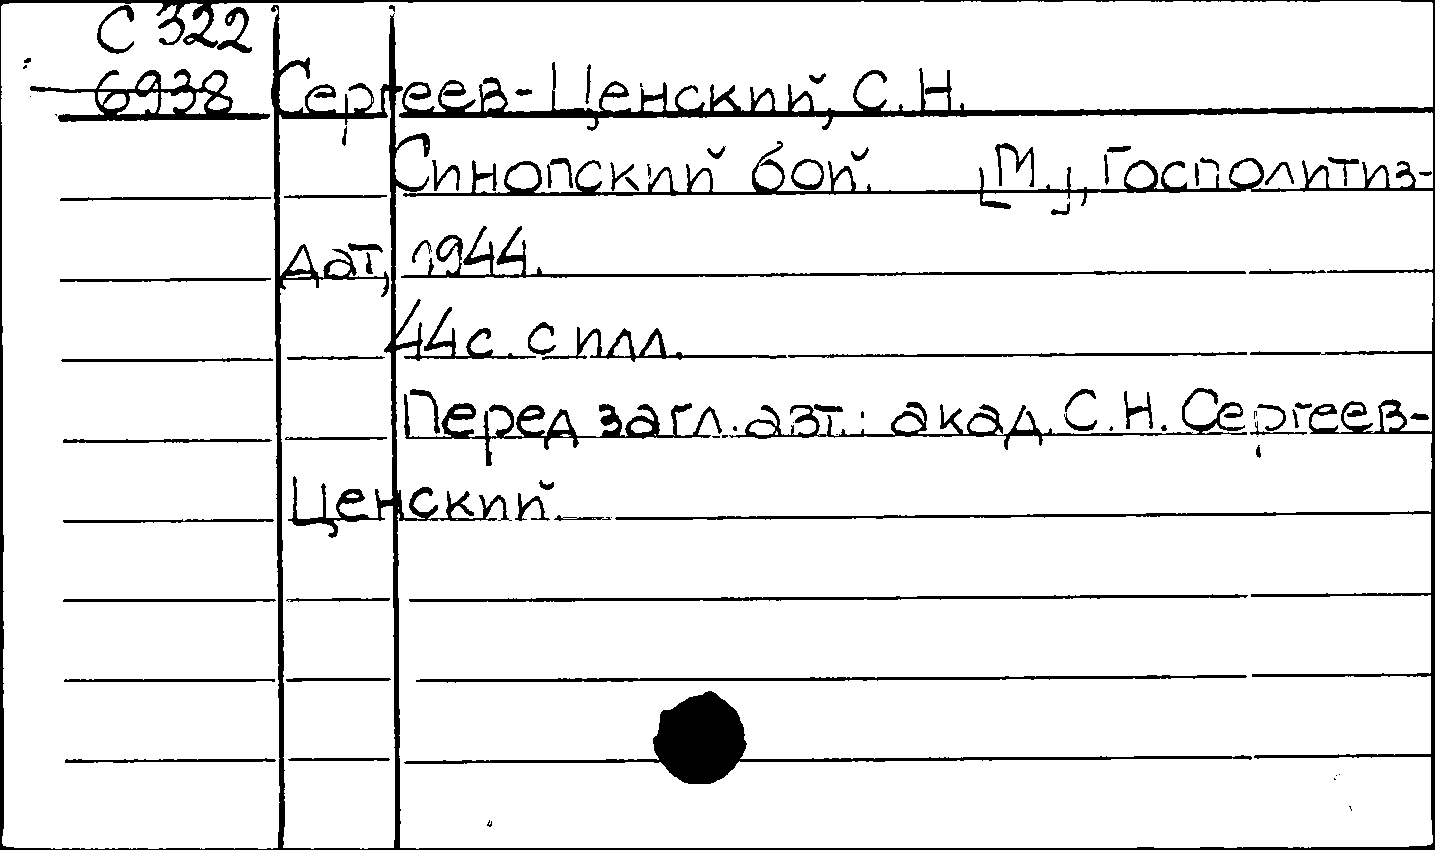 С 322
6938 Сергеев-Ценский, С.Н.
Синопский бой. [М.], Госполитиз-
дат, 1944.
44 с. с илл.
Перед загл. авт.: акад. С.Н. Сергеев-
Ценский.